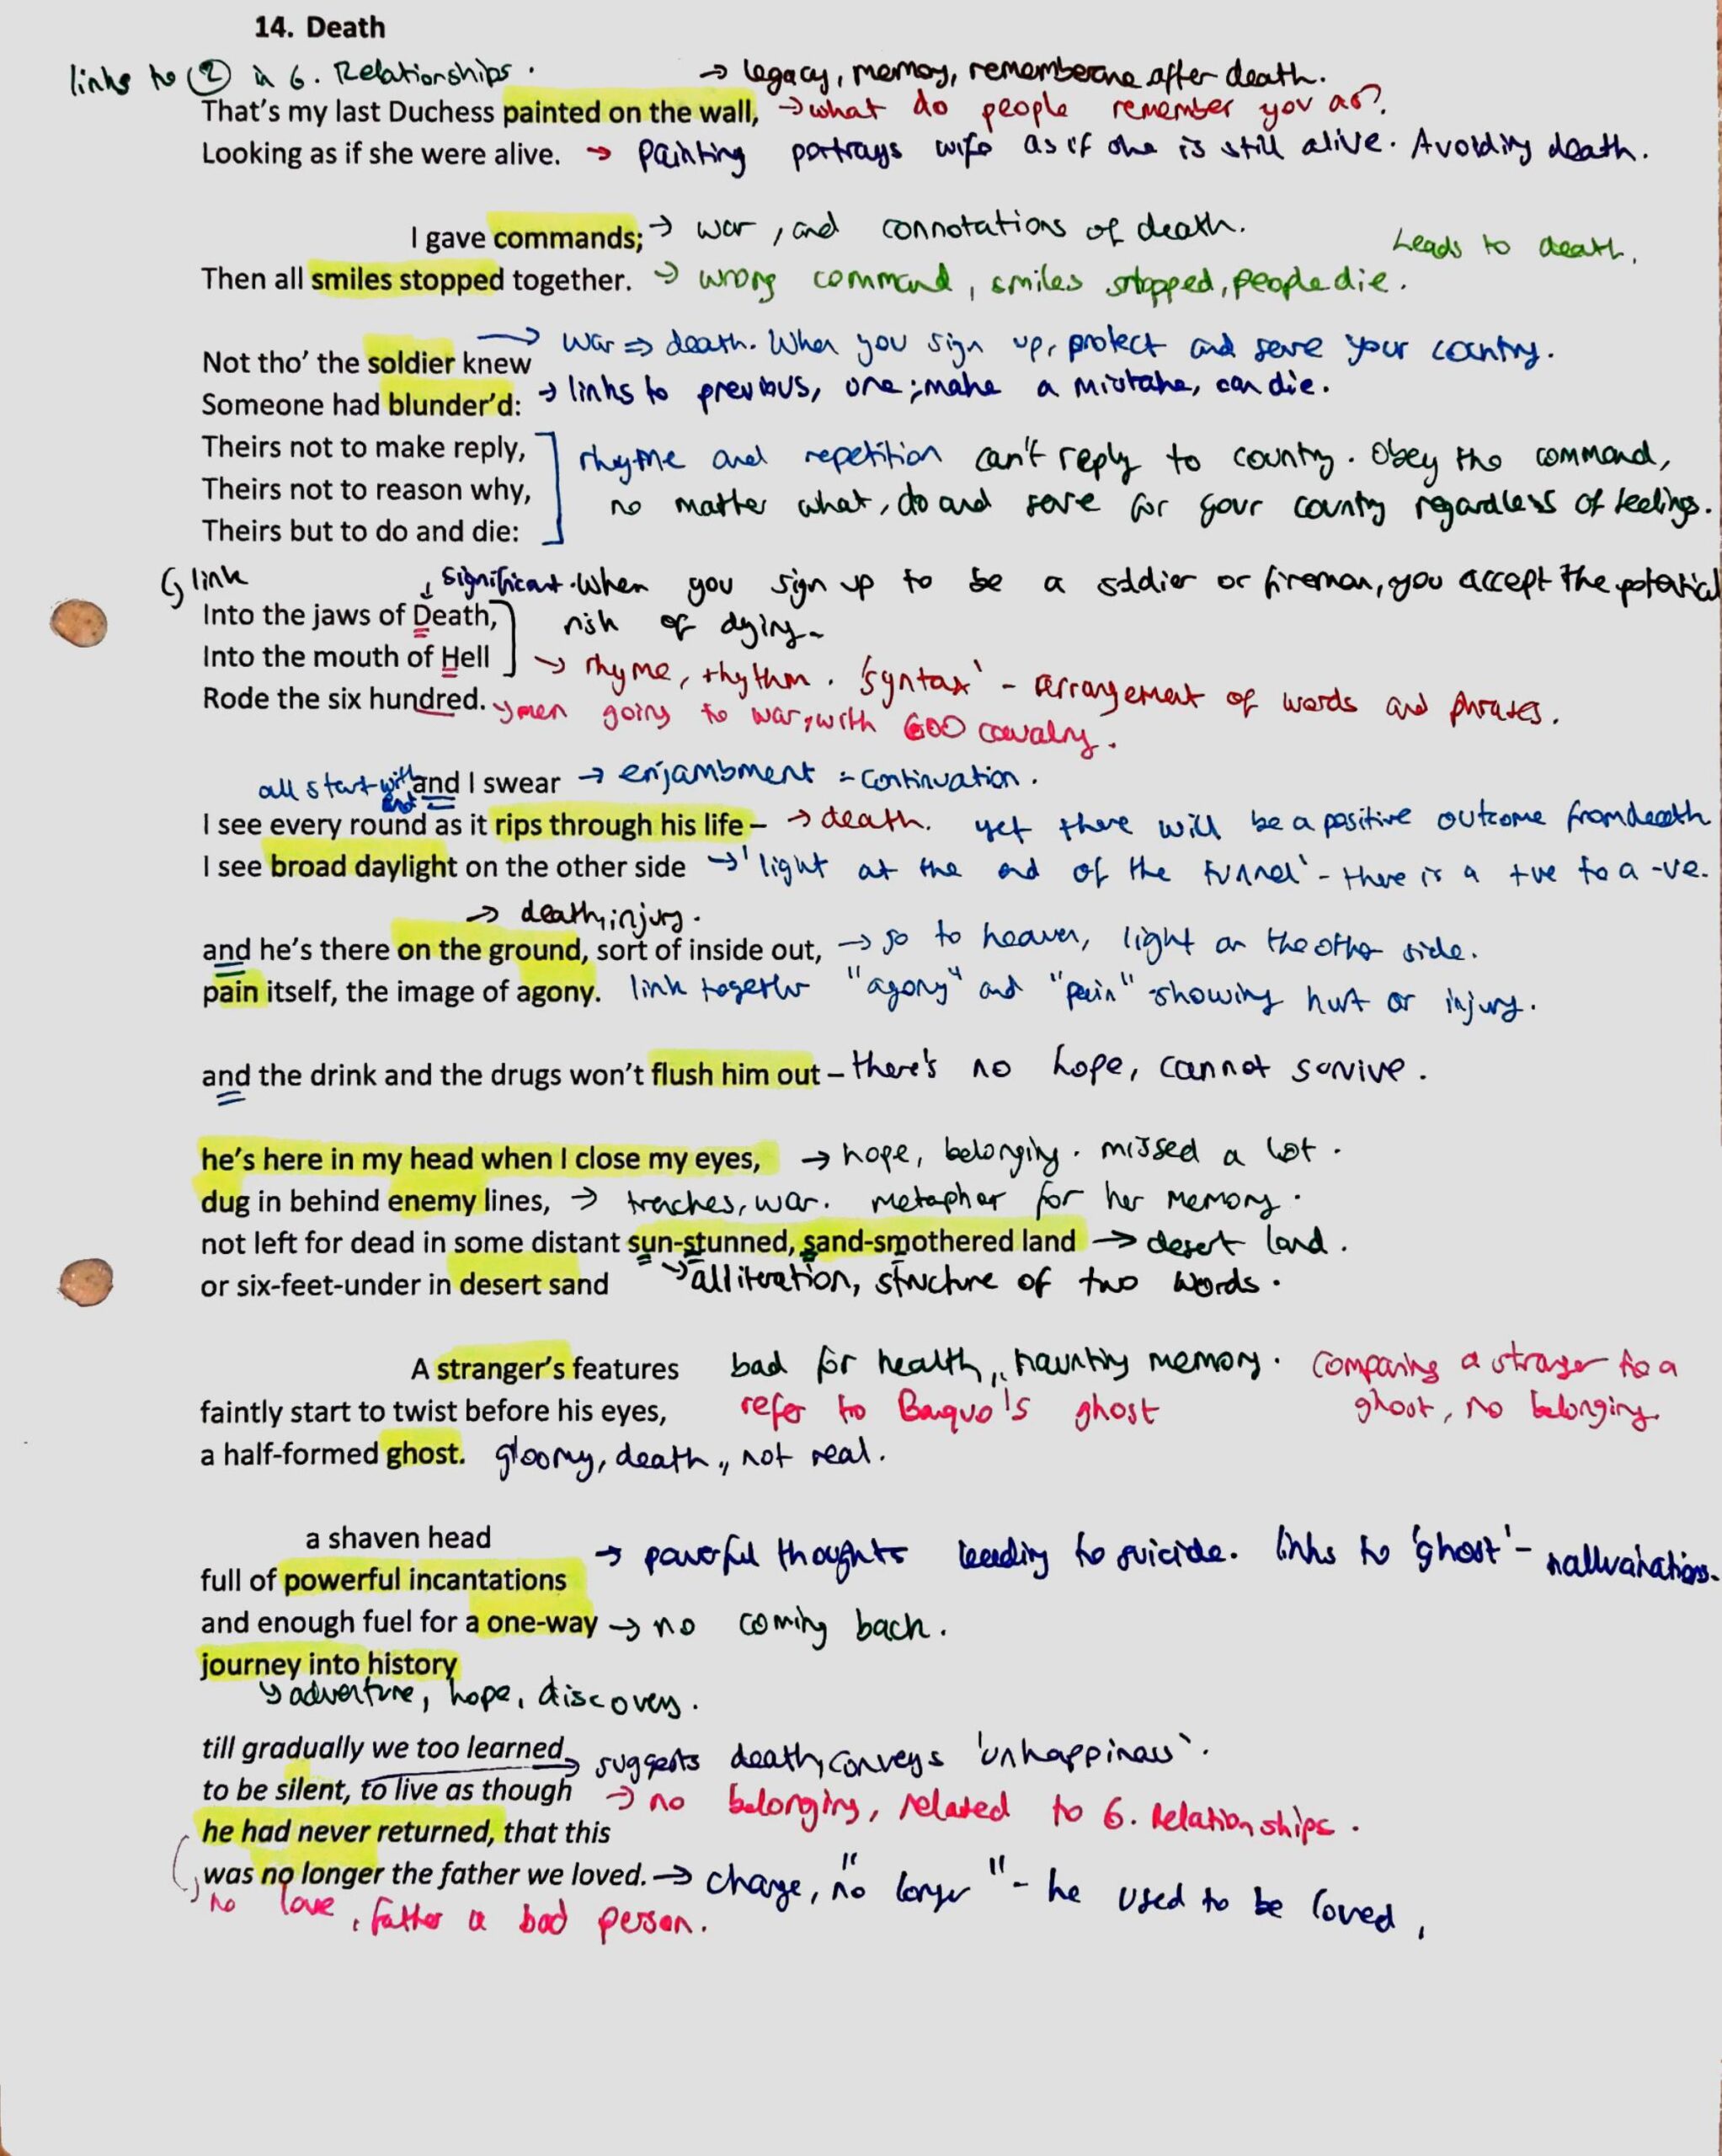 14. Death
links to ② in 6. Relationships.
→ legacy, memory, rememberance after death.
That's my last Duchess painted on the wall, → what do people remember you as?
Looking as if she were alive. → painting portrays wife as if she is still alive. Avoiding death.
I gave commands; → war, and connotations of death.
Leads to death.
Then all smiles stopped together. → wrong command, smiles stopped, people die.
→ war ⇒ death. When you sign up, protect and serve your country.
Not tho' the soldier knew
Someone had blunder'd: → links to previous, one; make a mistake, can die.
Theirs not to make reply,
rhyme and repetition can't reply to country. Obey the command,
Theirs not to reason why,
no matter what, do and serve for your country regardless of feelings.
Theirs but to do and die:
↳ link
↓ significant. When you sign up to be a soldier or fireman, you accept the potential
Into the jaws of Death,
risk of dying.
Into the mouth of Hell → rhyme, rhythm. 'syntax' - arrangement of words and phrases.
Rode the six hundred. ↘ men going to war, with 600 cavalry.
all start with and
and I swear → enjambment = continuation.
I see every round as it rips through his life – → death. yet there will be a positive outcome from death
I see broad daylight on the other side → 'light at the end of the tunnel' - there is a +ve to a -ve.
→ death, injury.
and he's there on the ground, sort of inside out, → go to heaven, light on the other side.
pain itself, the image of agony. link together "agony" and "pain" showing hurt or injury.
and the drink and the drugs won't flush him out – there's no hope, cannot survive.
he's here in my head when I close my eyes, → hope, belonging. missed a lot.
dug in behind enemy lines, → trenches, war. metaphor for her memory.
not left for dead in some distant sun-stunned, sand-smothered land → desert land.
or six-feet-under in desert sand ↘ alliteration, structure of two words.
A stranger's features bad for health, haunting memory. Comparing a stranger to a
faintly start to twist before his eyes, refer to Baquo's ghost ghost, no belonging.
a half-formed ghost. gloomy, death, not real.
a shaven head
→ powerful thoughts leading to suicide. links to 'ghost' - hallucinations.
full of powerful incantations
and enough fuel for a one-way → no coming back.
journey into history
↳ adventure, hope, discovery.
till gradually we too learned → suggests death, conveys 'unhappiness'.
to be silent, to live as though → no belonging, related to 6. Relationships.
he had never returned, that this
was no longer the father we loved. → change, "no longer" - he used to be loved,
no love, father a bad person.